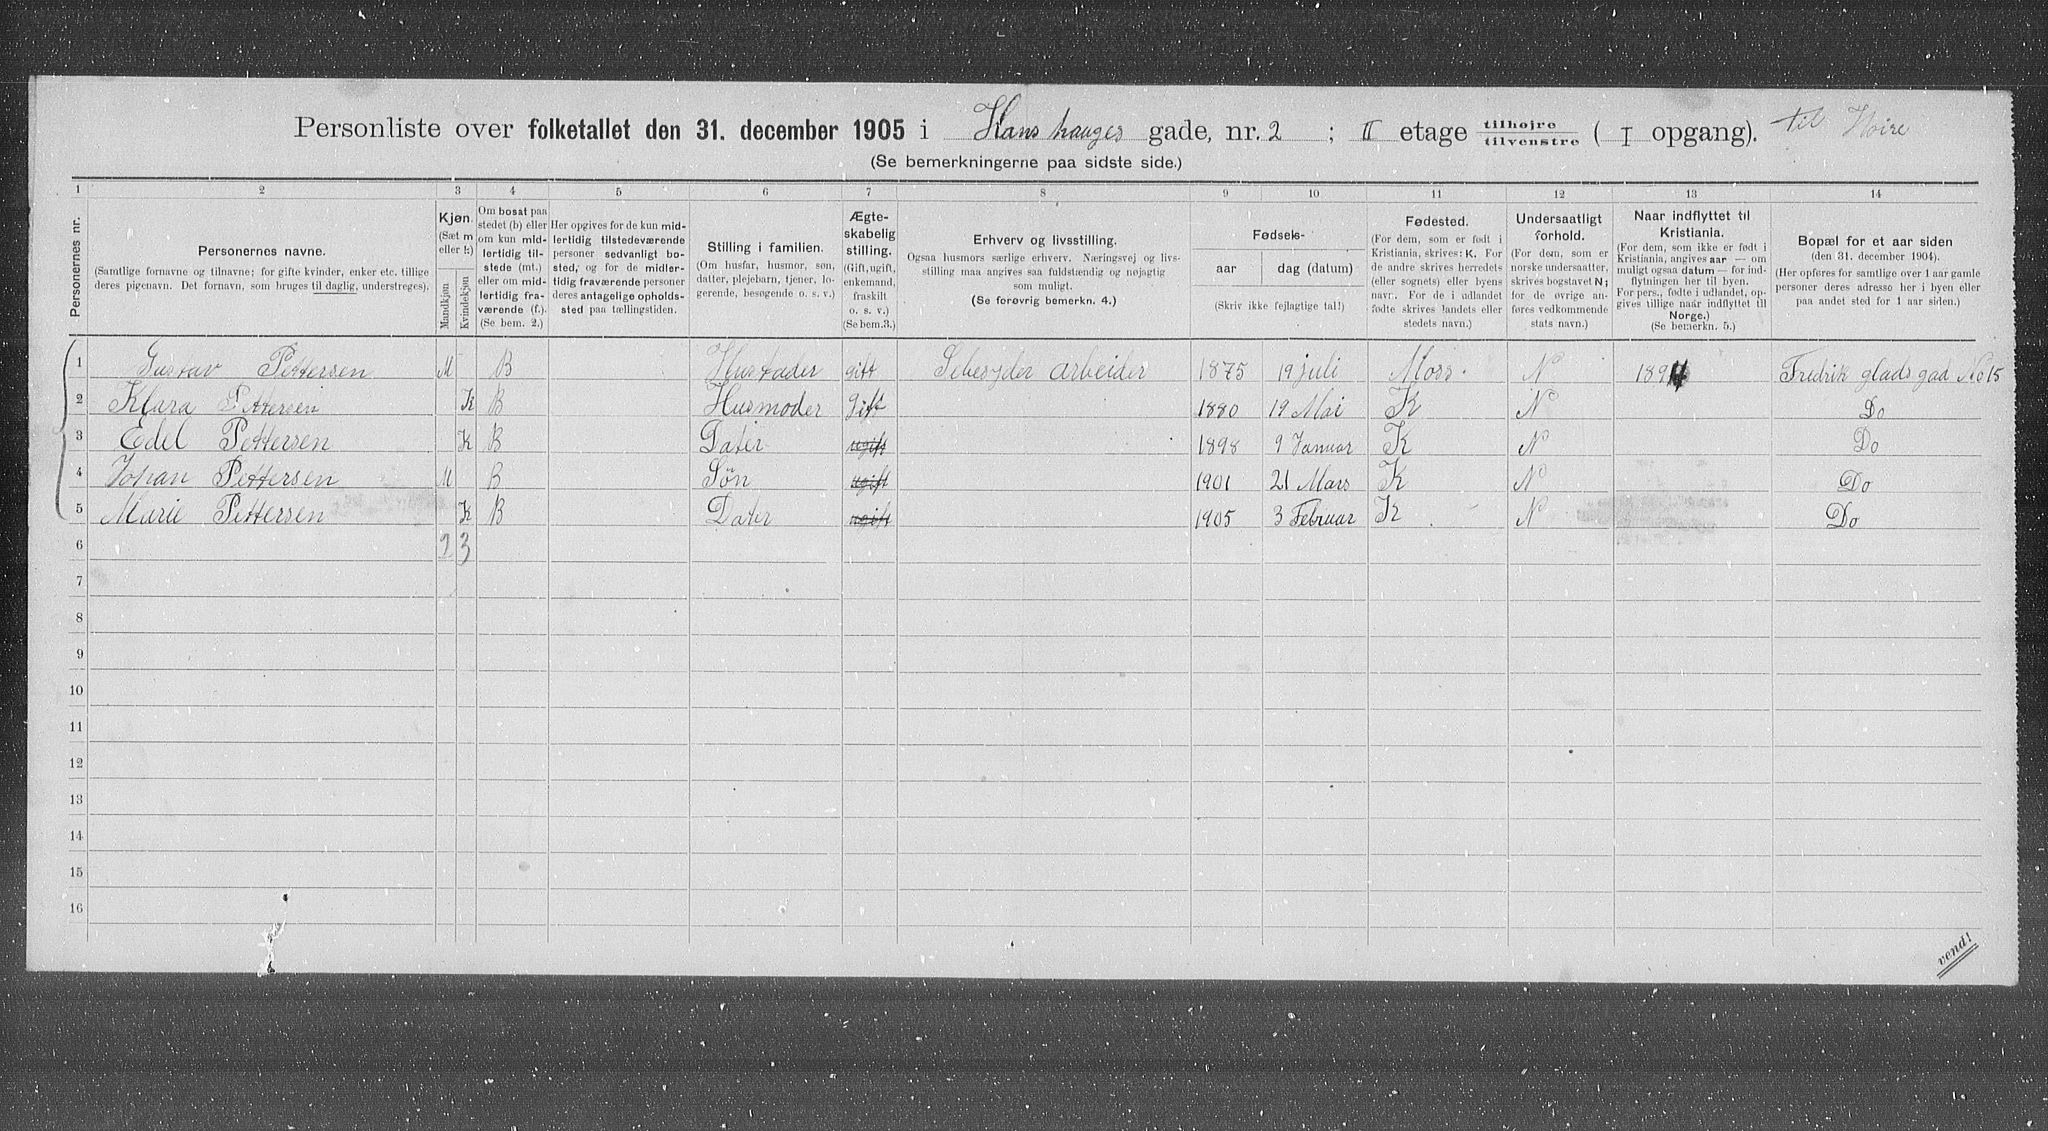 Personliste over folketallet den 31. december 1905 i Hans hauges gade, nr. 2 ; II etage tilhøjre / tilvenstre ( I opgang). til Høire
(Se bemerkningerne paa sidste side.)
1 2 3 4 5 6 7 8 9 10 11 12 13 14
Personernes nr.
Personernes navne.
(Samtlige fornavne og tilnavne; for gifte kvinder, enker etc. tillige
deres pigenavn. Det fornavn, som bruges til daglig, understreges).
Kjøn.
(Sæt m
eller k:)
Mandkjøn
Kvindekjøn
Om bosat paa
stedet (b) eller
om kun mid-
lertidig til-
stede (mt.)
eller om mid-
lertidig fra-
værende (f.).
(Se bem. 2.)
Her opgives for de kun mid-
lertidig tilstedeværende
personer sedvanligt bo-
sted, og for de midler-
tidig fraværende personer
deres antagelige opholds-
sted paa tællingstiden.
Stilling i familien.
(Om husfar, husmor, søn,
datter, plejebarn, tjener, lo-
gerende, besøgende o. s. v.)
Ægte-
skabelig
stilling.
(Gift, ugift,
enkemand,
fraskilt
o. s. v.)
(Se bem.3.)
Erhverv og livsstilling.
Ogsaa husmors særlige erhverv. Næringsvej og livs-
stilling maa angives saa fuldstændig og nøjagtig
som muligt.
(Se forøvrig bemerkn. 4.)
Fødsels-
aar dag (datum)
(Skriv ikke fejlagtige tal!)
Fødested.
(For dem, som er født i
Kristiania, skrives: K. For
de andre skrives herredets
(eller sognets) eller byens
navn. For de i udlandet
fødte skrives landets eller
stedets navn.)
Undersaatligt
forhold.
(For dem, som er
norske undersaatter,
skrives bogstavet N;
for de øvrige an-
føres vedkommende
stats navn.)
Naar indflyttet til
Kristiania.
(For dem, som ikke er født i
Kristiania, angives aar — om
muligt ogsaa datum — for ind-
flytningen her til byen.
For pers., fødte i udlandet, op-
gives tillige naar indflyttet til
Norge.)
(Se bemerkn. 5.)
Bopæl for et aar siden
(den 31. december 1904).
(Her opføres for samtlige over 1 aar gamle
personer deres adresse her i byen eller
paa andet sted for 1 aar siden.)
1 Gustav Pettersen M B Husfader gift arbeider 1875 19 juli Moss. N 1894 Fredrik glads gad No 15
2 Klara Pettersen K B Husmoder gift 1880 19 Mai K N Do
3 Edel Pettersen K B Dater ugift 1898 9 Januar K N Do
4 Johan Pettersen M B Søn ugift 1901 21 Mars K N Do
5 Marie Pettersen K B Dater ugift 1905 3 Februar K N Do
6 2 3
7
8
9
10
11
12
13
14
15
16
vend!